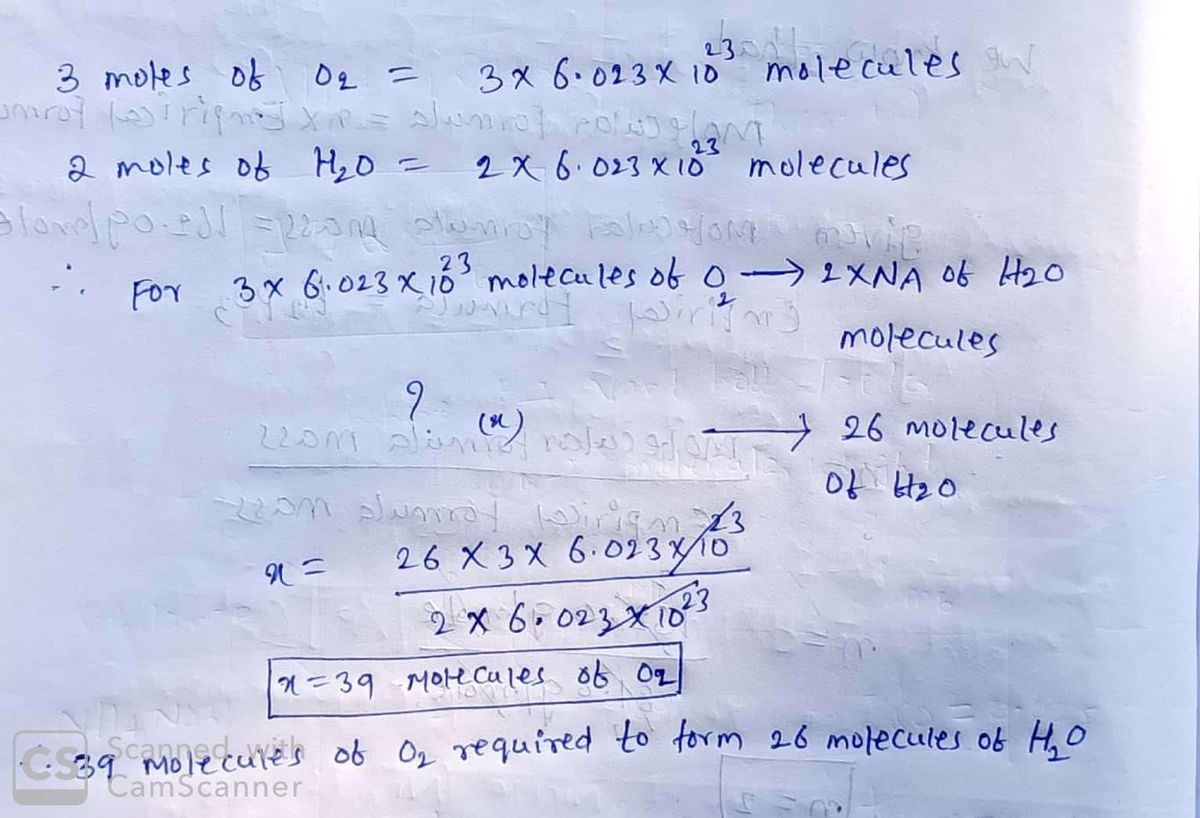 3 moles of O2 = 3 × 6.023 × 10^23 molecules
2 moles of H2O = 2 × 6.023 × 10^23 molecules
∴ For 3 × 6.023 × 10^23 molecules of O2 → 2 × NA of H2O
molecules
? (x) → 26 molecules
of H2O
x = 26 × 3 × 6.023 × 10^23
2 × 6.023 × 10^23
x = 39 Molecules of O2
∴ 39 molecules of O2 required to form 26 molecules of H2O
CS Scanned with
CamScanner